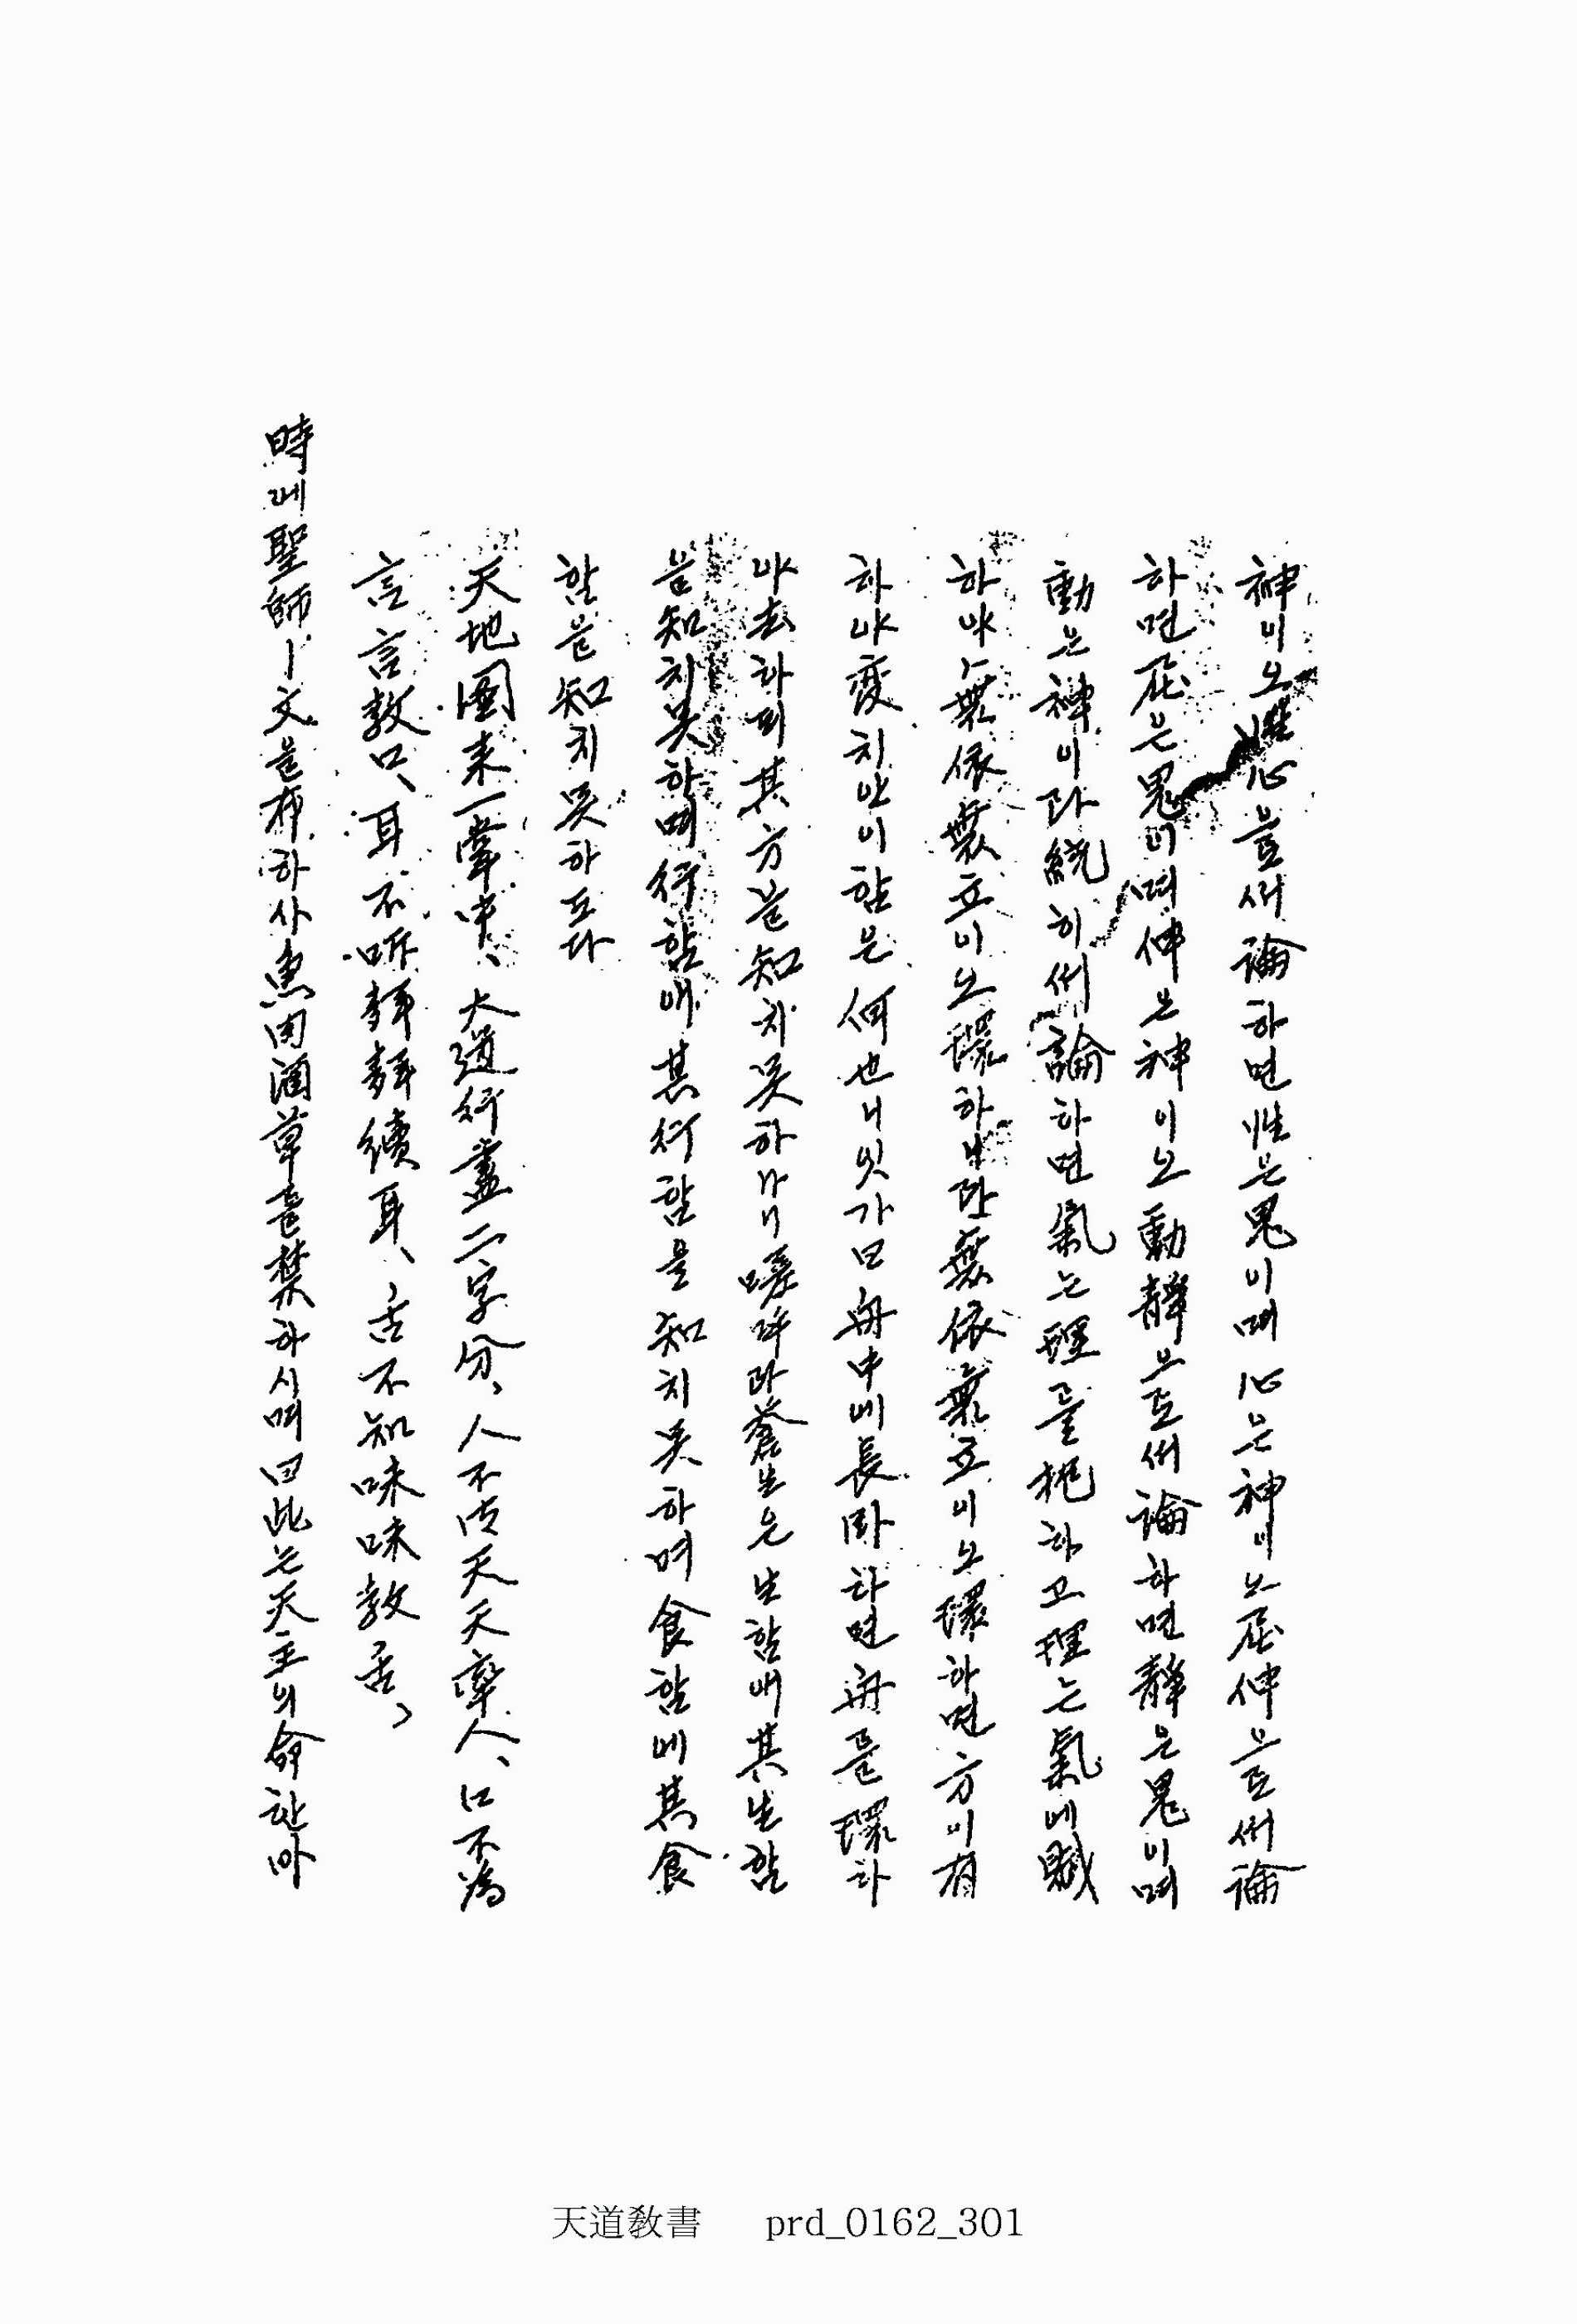 神이오性心을써論하면性은鬼이며心은神이오屈伸으로써論
하면屈은鬼이며伸은神이오動靜으로써論하면靜은鬼이며
動은神이라統히써論하면氣는理를把하고理는氣에賦
하야無依無立이오環하나니無依無立이오環하면方이有
하야変치안이함은何也니잇가曰舟中에長臥하면舟를環하
야去하되其方을知치못하나니嗟呼라蒼生은生함에其生함
을知치못하며行함에其行함을知치못하며食함에其食
함을知치못하도다
天地圓来一掌中、大道行盡二字分、人不 天天率人、口不為
言言教口、耳不听聲聲續耳、舌不知味味教舌、
時에聖師ㅣ文을布하사魚肉酒草를禁하시며曰此는天主의命한바